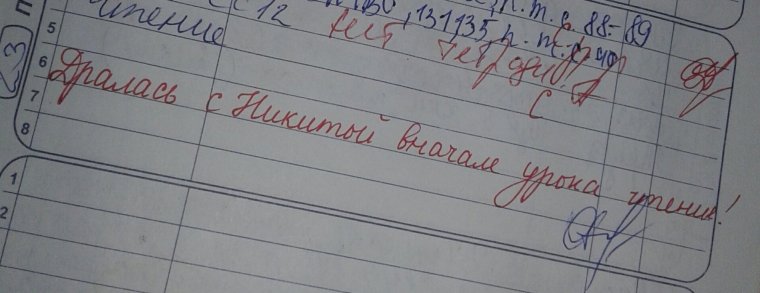 131,135 п. т. с. 88-89
чтение с 12 нет тетради!
5
6
7
8
23
Дралась с Никитой вначале урока чтения!
1
2